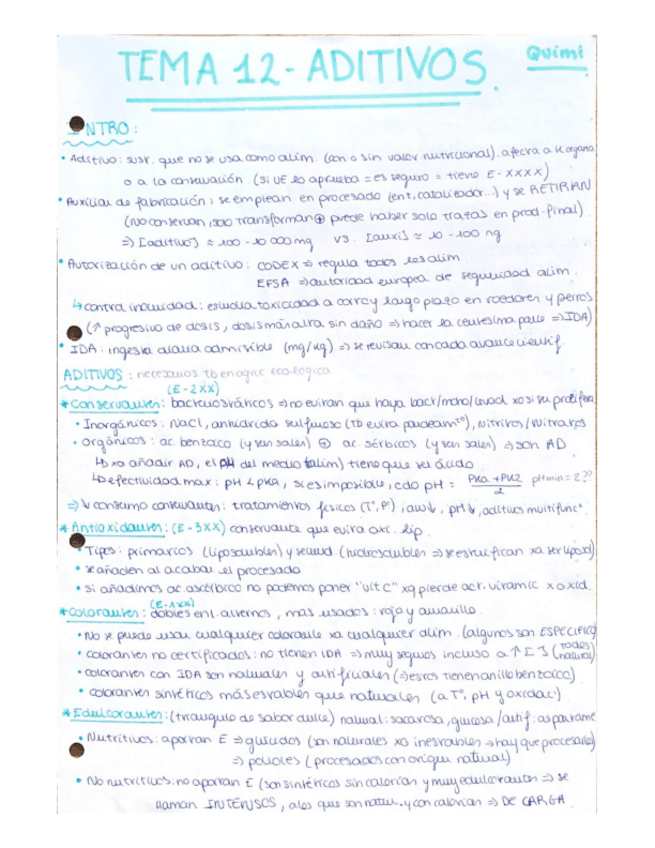 TEMA 12 - ADITIVOS.
Quími
INTRO:
• Aditivo: sust. que no se usa como alim. (con o sin valor nutricional). afecta a K organo
o a la conservación. (si UE lo aprueba = es seguro = tiene E - XXXX)
• Auxiliar de fabricación: se emplean en procesado (ent, catalizador...) y se RETIRAN
(No conservan, solo transforman ⊕ puede haber solo trazas en prod. final).
⇒ [aditivo] ≈ 100 - 10 000 mg vs. [auxi] ≈ 10 - 100 ng
• Autorización de un aditivo: CODEX ⇒ regula todos los alim
EFSA ⇒ autoridad europea de seguridad alim.
↳ contra inocuidad: estudia toxicidad a corto y largo plazo en roedores y perros
(↑ progresivo de dosis, dosis más alta sin daño ⇒ hacer la centésima parte ⇒ IDA)
• IDA: ingesta diaria admisible (mg/kg) ⇒ se revisan con cada avance científ.
ADITIVOS: necesarios tb en agric ecológica
(E - 2XX)
* Conservantes: bacteriostáticos ⇒ no evitan que haya bact/moho/levad xo si su prolifera
• Inorgánicos: NaCl, anhidrido sulfuroso (tb evita pardeam^to), nitritos/nitratos
• Orgánicos: ac. benzoico (y sen sales) ⊕ ac. sórbicos (y sen sales) ⇒ son AD
↳ xa añadir AD, el pH del medio (alim) tiene que ser ácido
↳ efectividad max: pH < pKa, si es imposible, cdo pH = PKa + PK2 / 2 pH min = 2??
⇒ ↓ consumo conservantes: tratamientos físicos (Tª, Pº), aw↓, pH↓, aditivo multifunc^n.
* Antioxidantes: (E - 3XX) conservante que evita oxi. lip.
• Tipos: primarios (liposolubles) y secund. (hidrosolubles ⇒ se esterifican xa ser liposol)
• se añaden al acabar el procesado
• si añadimos ac. ascórbico no podemos poner "vit C" xq pierde act. vitamic x oxid.
(E - 1XX)
* Colorantes: dobles enl. alternos, más usados: rojo y amarillo.
• No se puede usar cualquier colorante xa cualquier alim. (algunos son ESPECIFICO
• colorantes no certificados: no tienen IDA ⇒ muy seguros incluso a ↑[ ] (todos natural)
• colorantes con IDA son naturales y artificiales (⇒ estos tienen anillo benzoico)
• colorantes sintéticos más estables que naturales (a Tª, pH y oxidac^n)
* Edulcorantes: (triangulo de sabor dulce) natural: sacarosa, glucosa / artif: aspartame
• Nutritivos: aportan E ⇒ glúcidos (son naturales xo inestables → hay que procesarlo)
⇒ polioles (procesados con origen natural)
• No nutritivos: no aportan E (son sintéticos sin calorías y muy edulcorantes ⇒ se
llaman INTENSOS, a los que son natur. y con calorías ⇒ DE CARGA